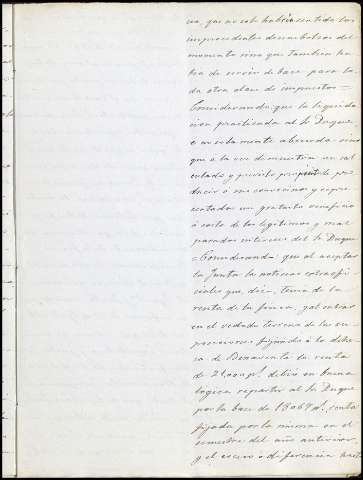 va, que no solo habría sentido los
improcedentes desembolsos del
momento sino que tambien ha
bia de servir de base para to
da otra clase de impuestos =
Considerando, que la liquida
cion practicada al Sr Duque
no solamente absurda sino
que a la vez demuestra un cal
culado y previsto proposito de pro
ducir a sus convecinos y repre
sentados un gratuito beneficio
a costa de los legitimos y mal
parados intereses del Sr Duque
= Considerando: que al aceptar
la Junta las noticias extraofi
ciales que, dice, tenia de la
renta de la finca, y al entrar
en el vedado terreno de las su
posiciones fijando á la dehe
sa de Benavente la renta
de 21,000 ps. debió en buena
logica repartir al Sr Duque
por la base de 18067 ps. renta
fijada por la misma en el
semestre del año anterior,
y el esceso o diferencia hasta